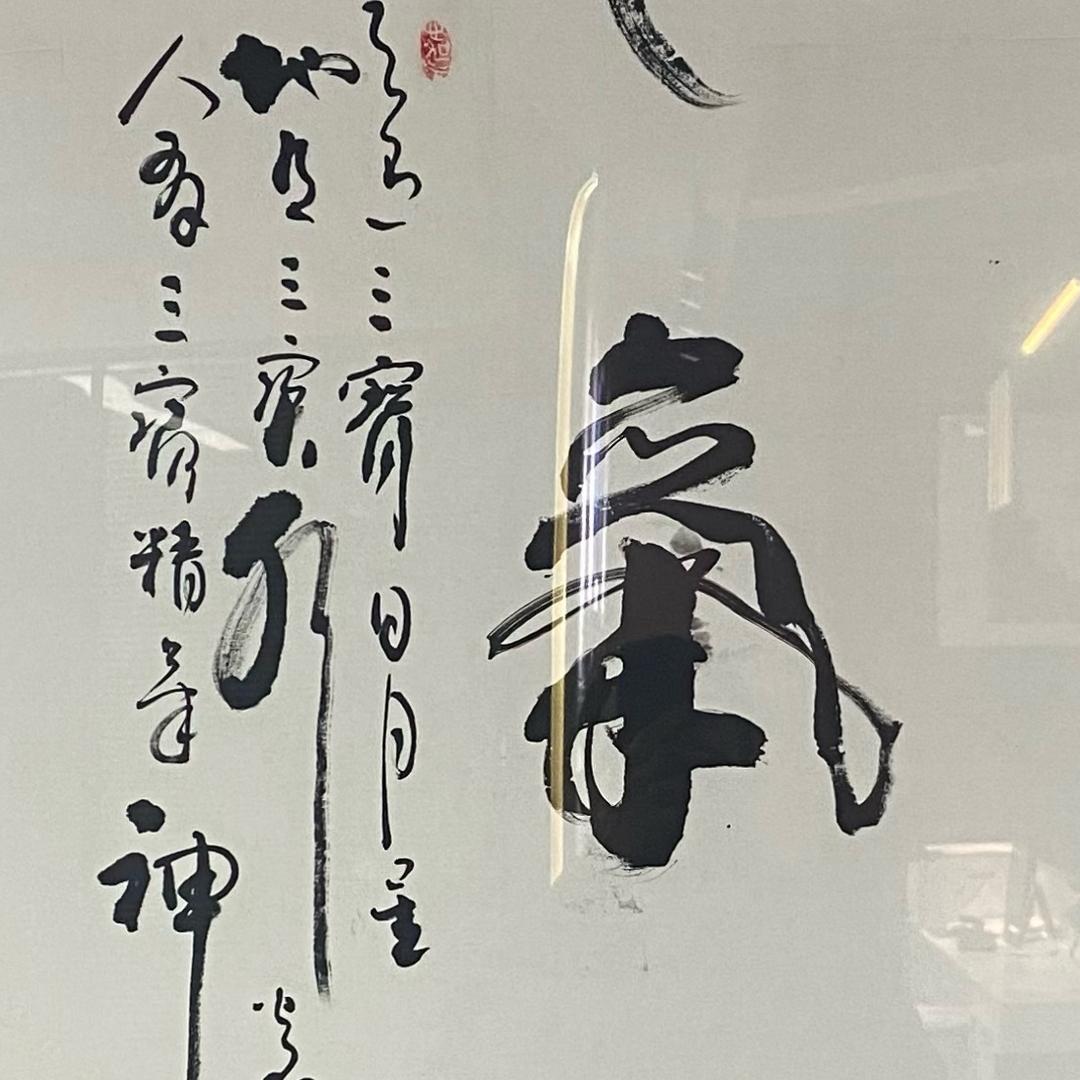 氣
天有三寶日月星
地有三寶水
人有三寶精氣神